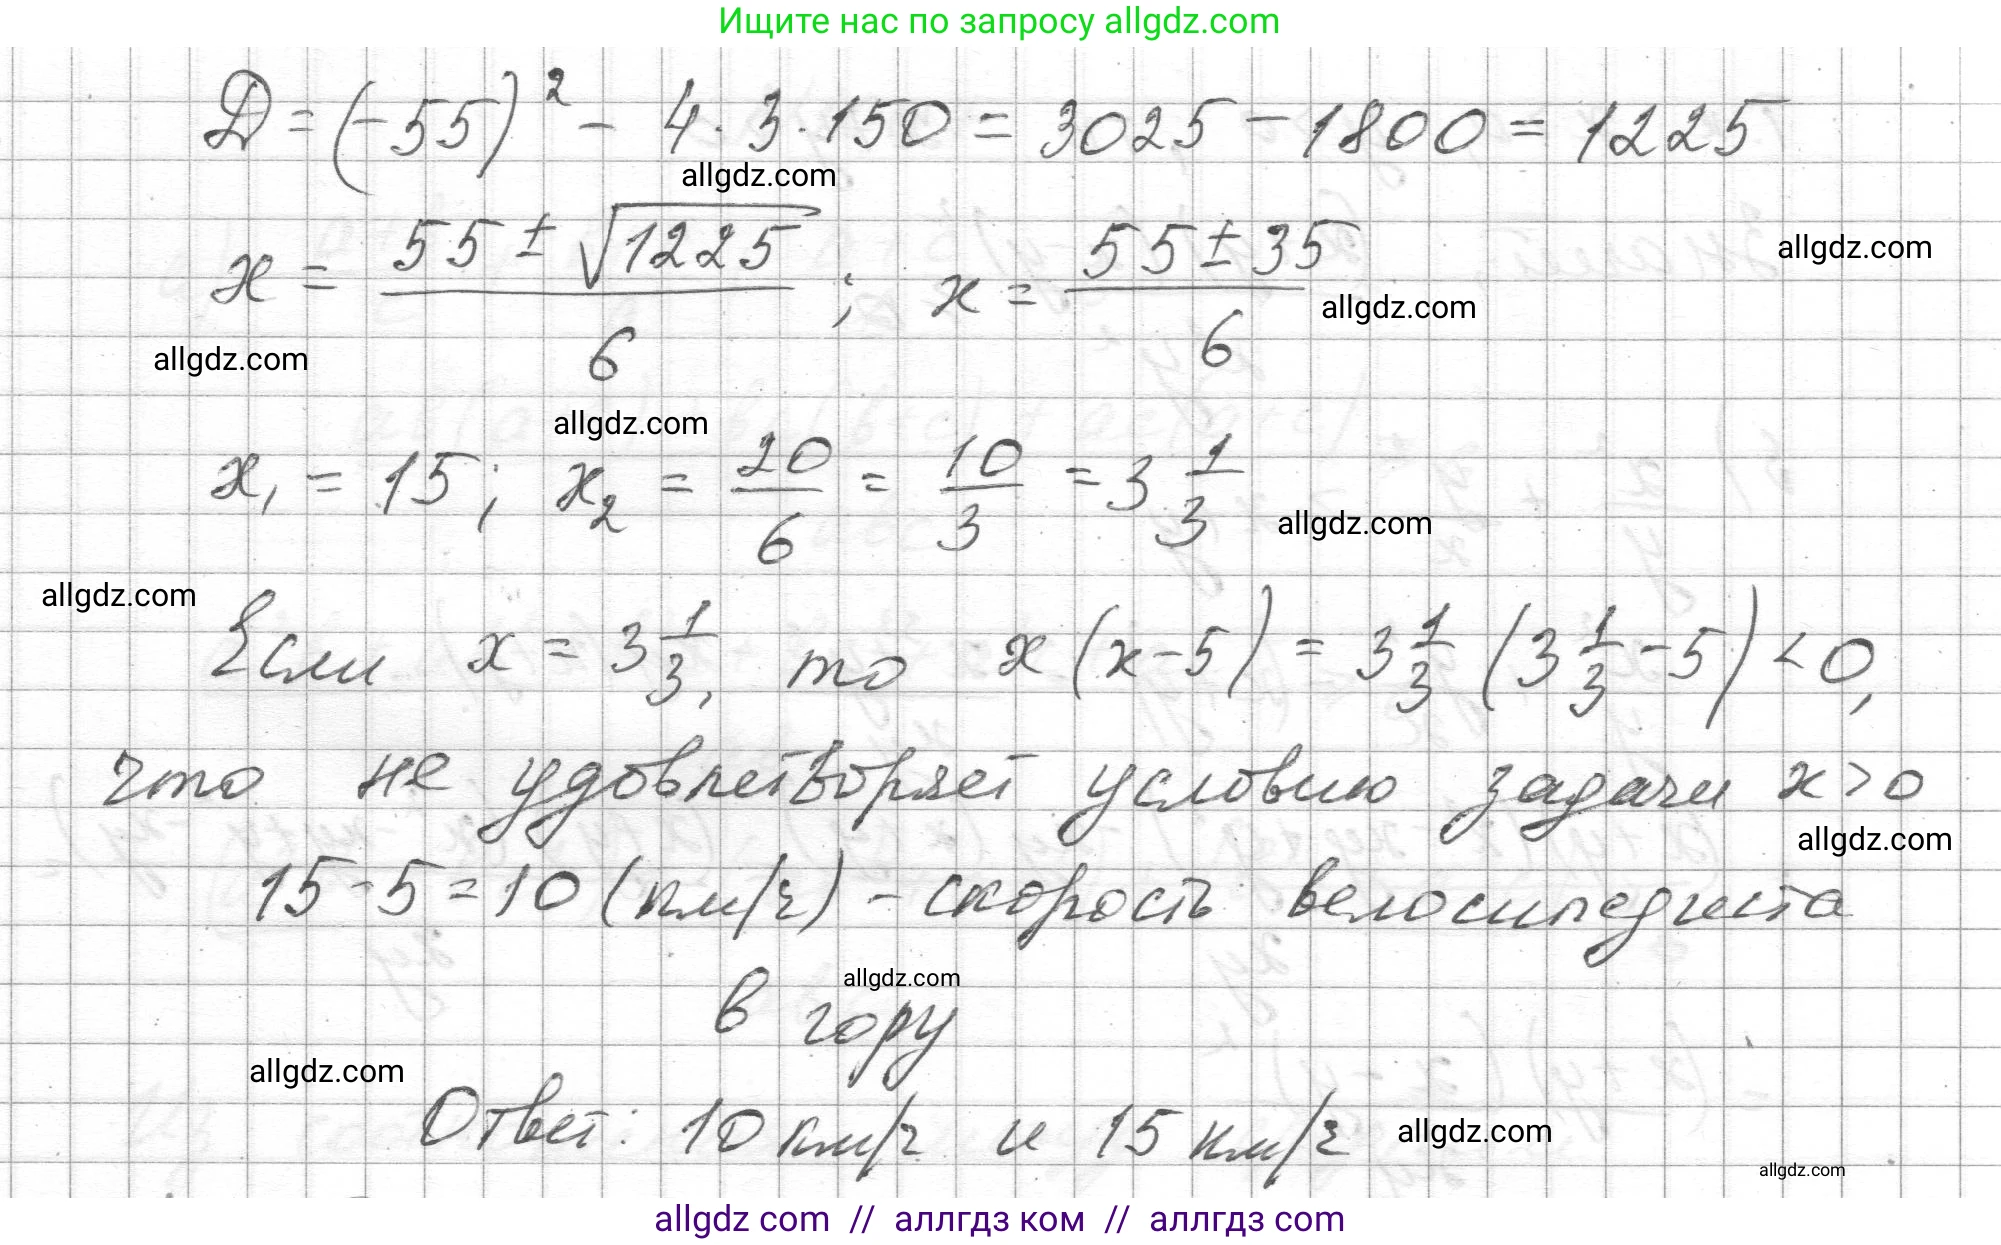 Ищите нас по запросу allgdz.com
D = (-55)² - 4·3·150 = 3025 - 1800 = 1225
allgdz.com
x = (55 ± √1225)/6 ; x = (55 ± 35)/6
allgdz.com
allgdz.com
allgdz.com
allgdz.com
x₁ = 15; x₂ = 20/6 = 10/3 = 3 1/3
allgdz.com
allgdz.com
Если x = 3 1/3, то x(x-5) = 3 1/3 (3 1/3 - 5) < 0,
что не удовлетворяет условию задачи x>0
allgdz.com
15-5=10 (км/ч) - скорость велосипедиста
allgdz.com
в гору
allgdz.com
Ответ: 10 км/ч и 15 км/ч
allgdz.com
allgdz.com
allgdz com // аллгдз ком // аллгдз com